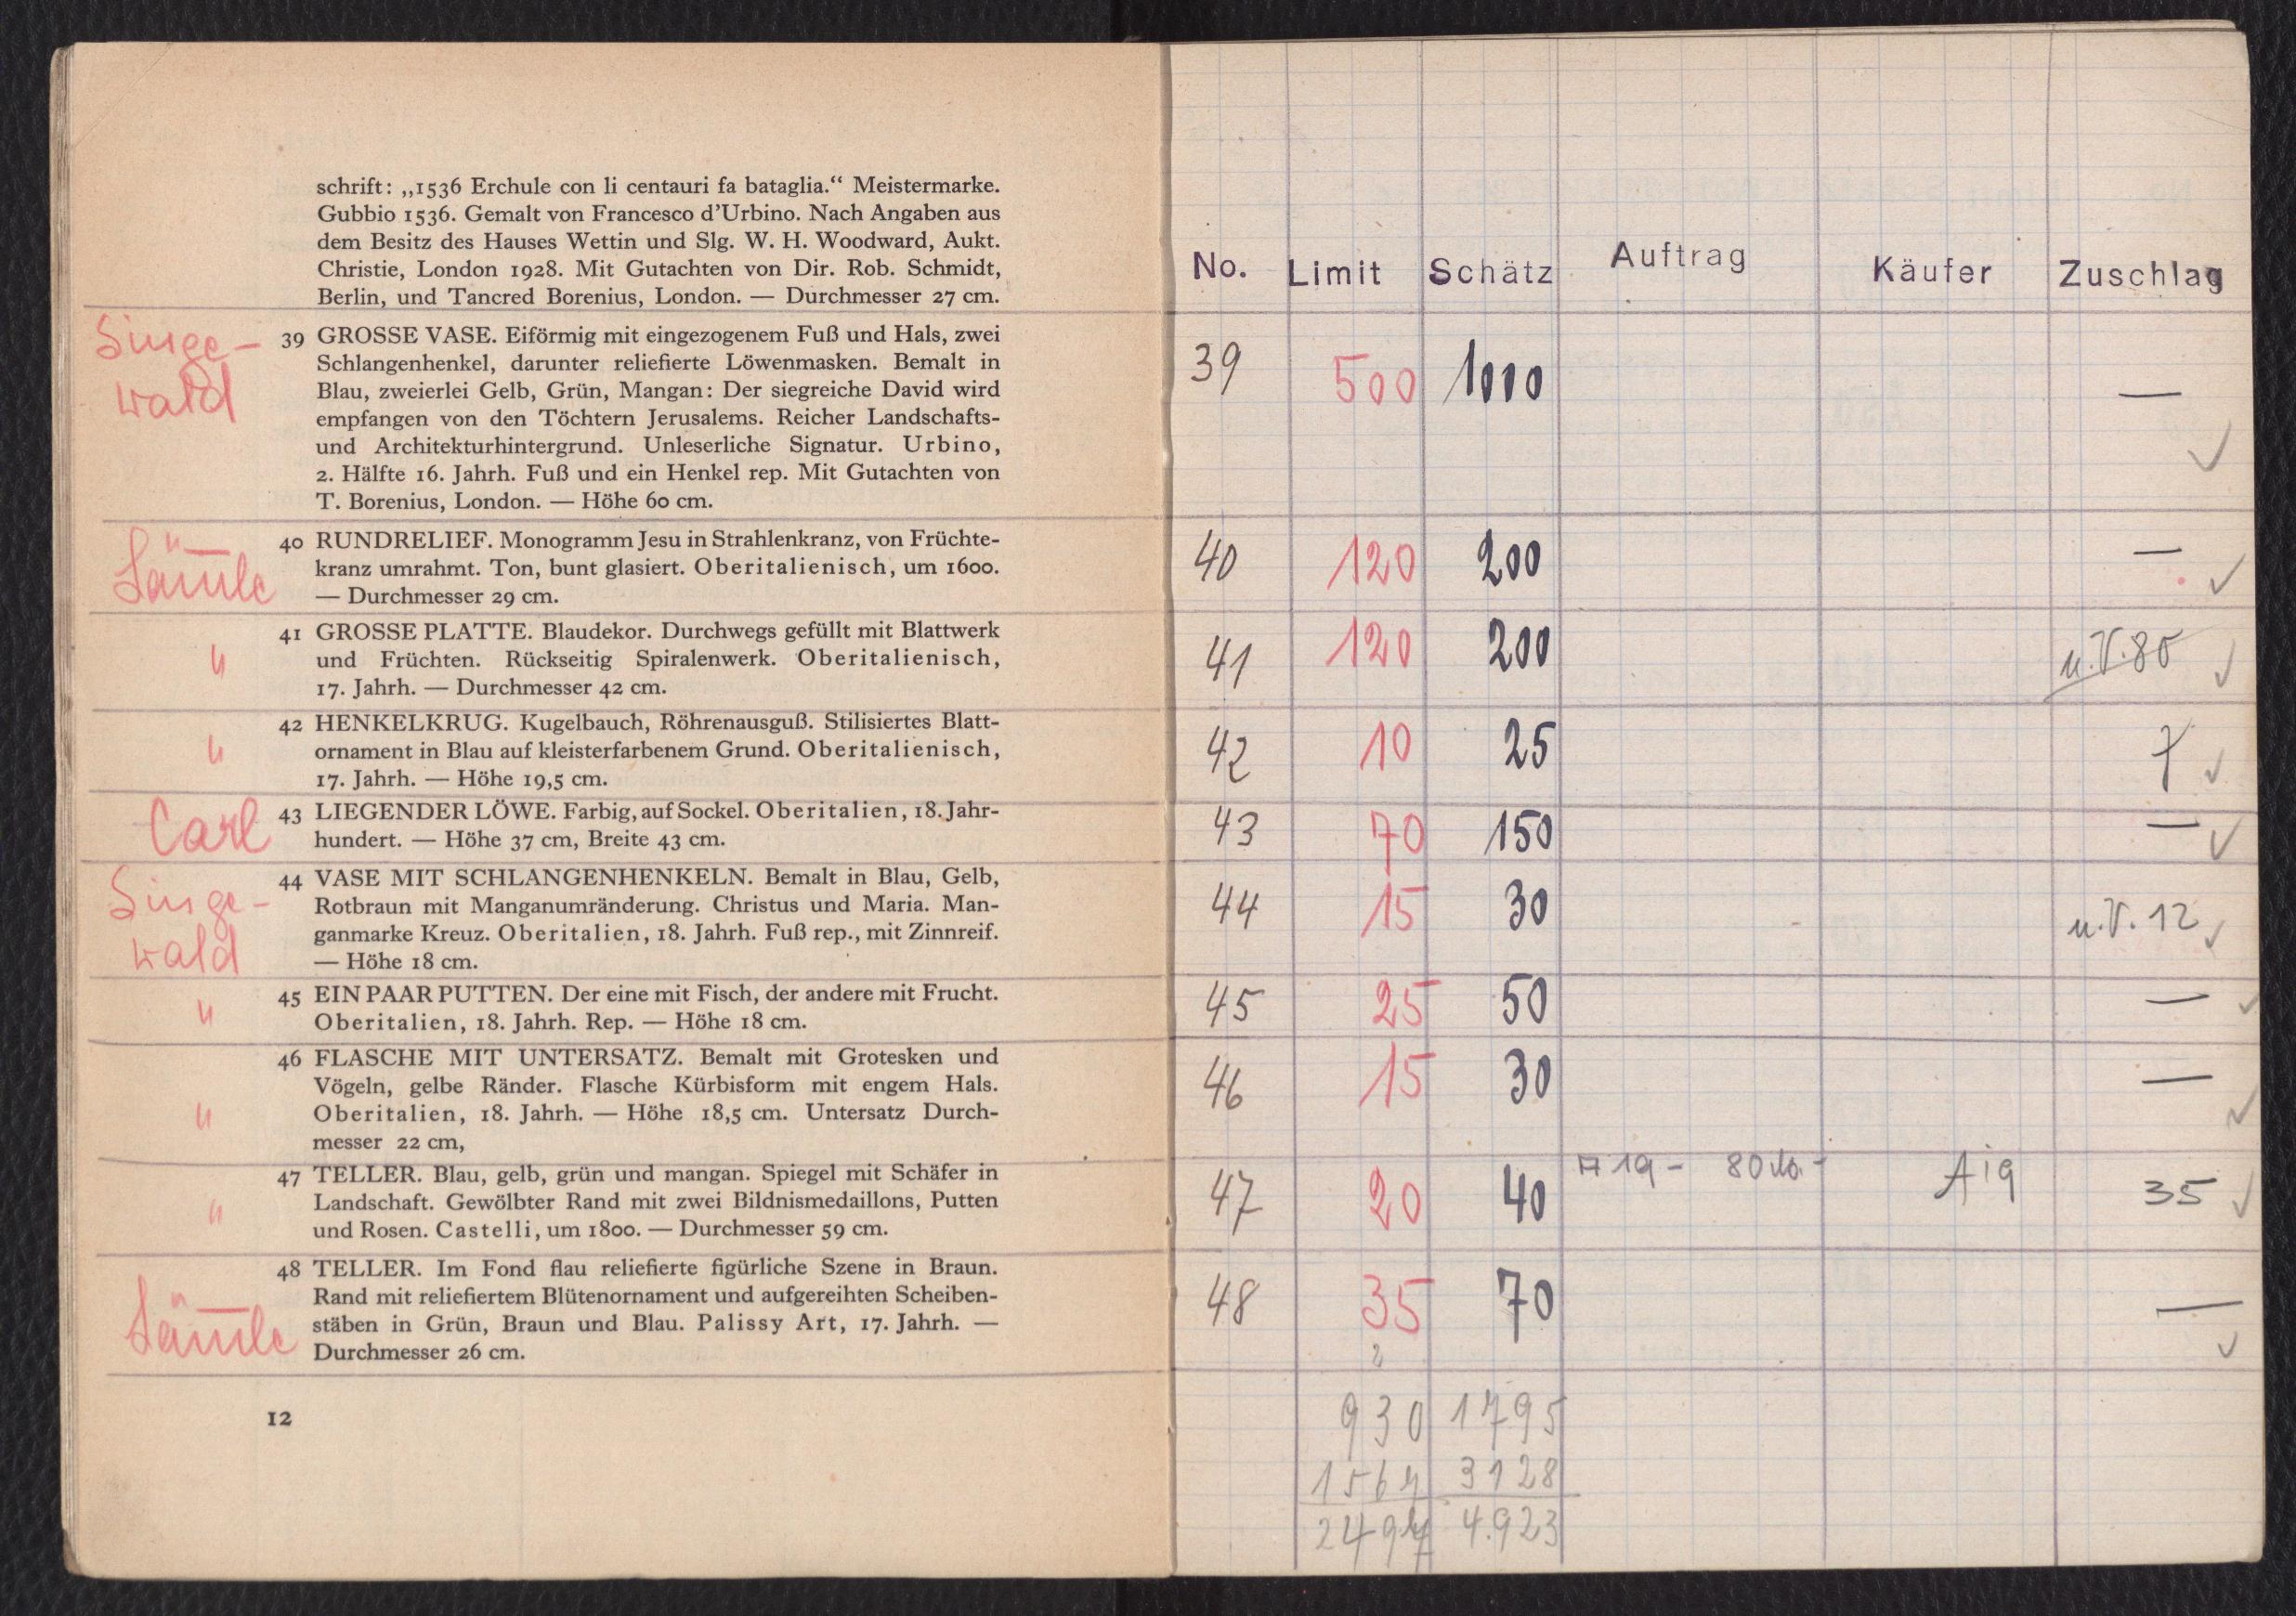 schrift: „1536 Erchule con li centauri fa bataglia.“ Meistermarke.
Gubbio 1536. Gemalt von Francesco d'Urbino. Nach Angaben aus
dem Besitz des Hauses Wettin und Slg. W. H. Woodward, Aukt.
Christie, London 1928. Mit Gutachten von Dir. Rob. Schmidt,
Berlin, und Tancred Borenius, London. — Durchmesser 27 cm.
Singe-
wald
39 GROSSE VASE. Eiförmig mit eingezogenem Fuß und Hals, zwei
Schlangenhenkel, darunter reliefierte Löwenmasken. Bemalt in
Blau, zweierlei Gelb, Grün, Mangan: Der siegreiche David wird
empfangen von den Töchtern Jerusalems. Reicher Landschafts-
und Architekturhintergrund. Unleserliche Signatur. Urbino,
2. Hälfte 16. Jahrh. Fuß und ein Henkel rep. Mit Gutachten von
T. Borenius, London. — Höhe 60 cm.
40 RUNDRELIEF. Monogramm Jesu in Strahlenkranz, von Früchte-
kranz umrahmt. Ton, bunt glasiert. Oberitalienisch, um 1600.
— Durchmesser 29 cm.
"
41 GROSSE PLATTE. Blaudekor. Durchwegs gefüllt mit Blattwerk
und Früchten. Rückseitig Spiralenwerk. Oberitalienisch,
17. Jahrh. — Durchmesser 42 cm.
"
42 HENKELKRUG. Kugelbauch, Röhrenausguß. Stilisiertes Blatt-
ornament in Blau auf kleisterfarbenem Grund. Oberitalienisch,
17. Jahrh. — Höhe 19,5 cm.
Carl
43 LIEGENDER LÖWE. Farbig, auf Sockel. Oberitalien, 18. Jahr-
hundert. — Höhe 37 cm, Breite 43 cm.
Singe-
wald
44 VASE MIT SCHLANGENHENKELN. Bemalt in Blau, Gelb,
Rotbraun mit Manganumränderung. Christus und Maria. Man-
ganmarke Kreuz. Oberitalien, 18. Jahrh. Fuß rep., mit Zinnreif.
— Höhe 18 cm.
"
45 EIN PAAR PUTTEN. Der eine mit Fisch, der andere mit Frucht.
Oberitalien, 18. Jahrh. Rep. — Höhe 18 cm.
"
46 FLASCHE MIT UNTERSATZ. Bemalt mit Grotesken und
Vögeln, gelbe Ränder. Flasche Kürbisform mit engem Hals.
Oberitalien, 18. Jahrh. — Höhe 18,5 cm. Untersatz Durch-
messer 22 cm,
"
47 TELLER. Blau, gelb, grün und mangan. Spiegel mit Schäfer in
Landschaft. Gewölbter Rand mit zwei Bildnismedaillons, Putten
und Rosen. Castelli, um 1800. — Durchmesser 59 cm.
48 TELLER. Im Fond flau reliefierte figürliche Szene in Braun.
Rand mit reliefiertem Blütenornament und aufgereihten Scheiben-
stäben in Grün, Braun und Blau. Palissy Art, 17. Jahrh. —
Durchmesser 26 cm.
12
No. Limit Schätz Auftrag Käufer Zuschlag
39 500 1000 — ✓
40 120 200 — ✓
41 120 200 u.V. 80 ✓
42 10 25 ✓
43 70 150 — ✓
44 15 30 u.V. 12 ✓
45 25 50 — ✓
46 15 30 — ✓
47 20 40 19 - 80 Aig 35 ✓
48 35 70 — ✓
930 1795
1567 3128
2497 4.923